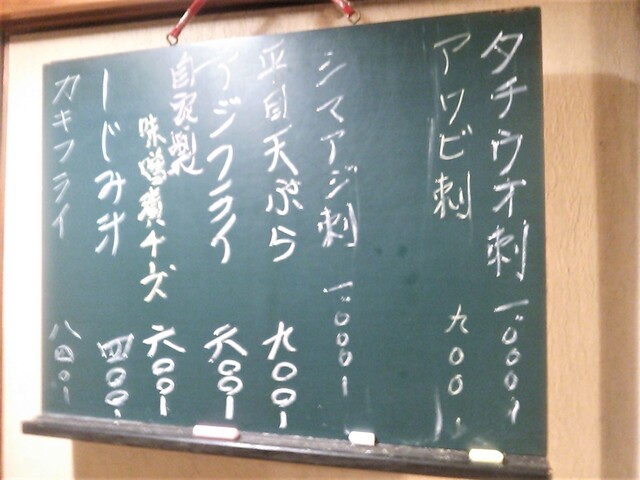 タチウオ刺 一、〇〇〇、
アワビ刺 九〇〇、
シマアジ刺 一、〇〇〇、
平目天ぷら 九〇〇、
アジフライ 六〇〇、
自家製
味噌漬チーズ 六〇〇、
しじみ汁 四〇〇、
カキフライ 八四〇、